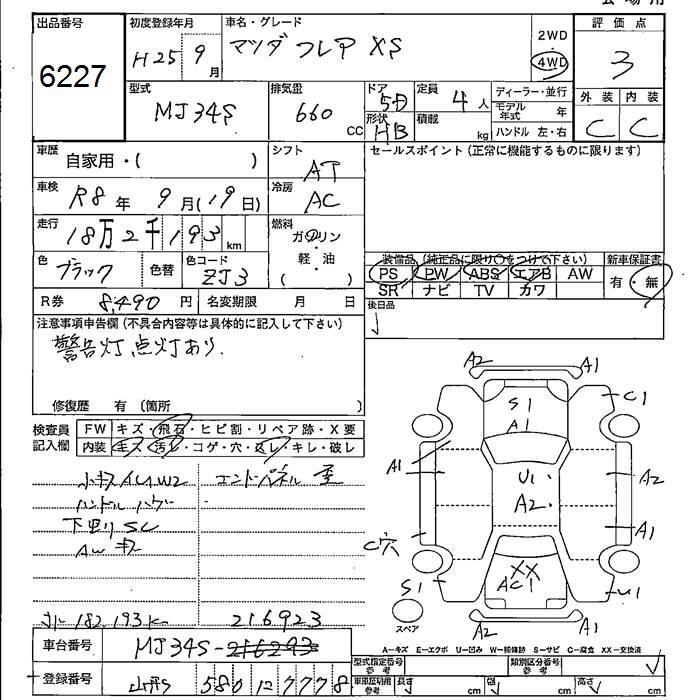 出品番号 初度登録年月 車名・グレード 評価点
6227 H25 9月 マツダ フレア XS 2WD 4WD 3
型式 排気量 ドア 定員 ディーラー・並行 外装 内装
MJ34S 660 CC 5D 4人 モデル年式 年 C C
形状 HB 積載 kg ハンドル 左・右
車歴 自家用・( ) シフト AT セールスポイント(正常に機能するものに限ります)
車検 R8年 9月(19日) 冷房 AC
走行 18万2千193km 燃料 ガソリン 軽・油 ( )
装備品(純正品に限り○をつけて下さい) 新車保証書
色 ブラック 色替 色コード ZJ3 PS PW ABS エアB AW 有・無
SR ナビ TV カワ
R券 8,490円 名変期限 月 日 後日品
注意事項申告欄(不具合内容等は具体的に記入して下さい)
警告灯点灯あり
修復歴 有 (箇所 )
検査員記入欄 FW キズ・飛石・ヒビ割・リペア跡・X要
内装 キズ・汚レ・コゲ・穴・スレ・キレ・破レ
小キズAU1W2 エンドパネル歪
ハンドルハゲ
下回りSC
AWキズ
メーター182,193km 216923
A2 A1
C1
S1
A1
A1 U1 A2
A2
A1
C穴
XX
S1 AC1 U1
スペア A2 A1
A-キズ E-エクボ U-凹み W-補修跡 S-サビ C-腐食 XX-交換済
車台番号 MJ34S-216293 型式指定番号 参考 類別区分番号 参考
登録番号 580 1277778 車庫証明用 参考 長さ cm 幅 cm 高さ cm